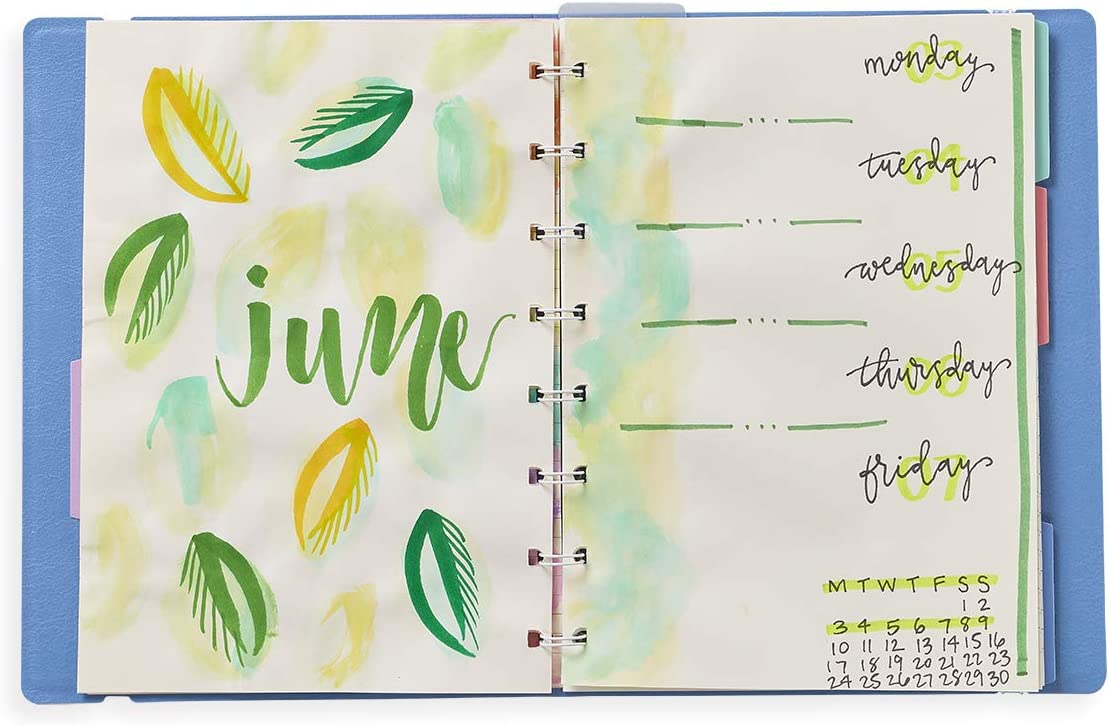 june
monday 03
tuesday 04
wednesday 05
thursday 06
friday 07
M T W T F S S
1 2
3 4 5 6 7 8 9
10 11 12 13 14 15 16
17 18 19 20 21 22 23
24 25 26 27 28 29 30